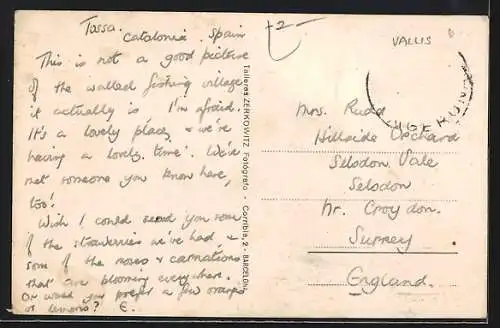 Tossa.
Catalonia. Spain
This is not a good picture
of the walled fishing village
it actually is I'm afraid.
It's a lovely place, & we're
having a lovely time. We've
met someone you know here,
too!
Wish I could send you some
of the strawberries we've had &
some of the roses & carnations
that are blooming everywhere.
Or would you prefer a few oranges
or lemons? E.
Talleres ZERKOWITZ Fotógrafo - Corribia, 2 - BARCELONA
2
VALLIS
Mrs. Rudd
Hillside Orchard
Selsdon Vale
Selsdon
Nr. Croydon.
Surrey
England.